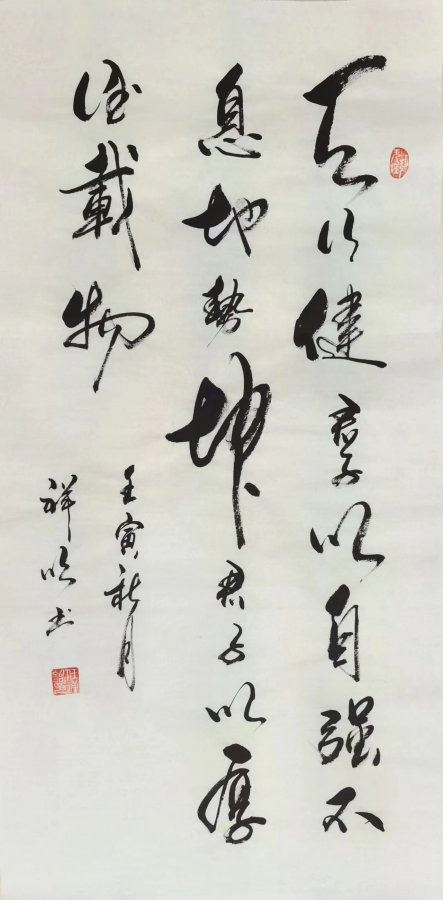 天行健君子以自强不
息地勢坤君子以厚
德載物
壬寅秋月
祥明書